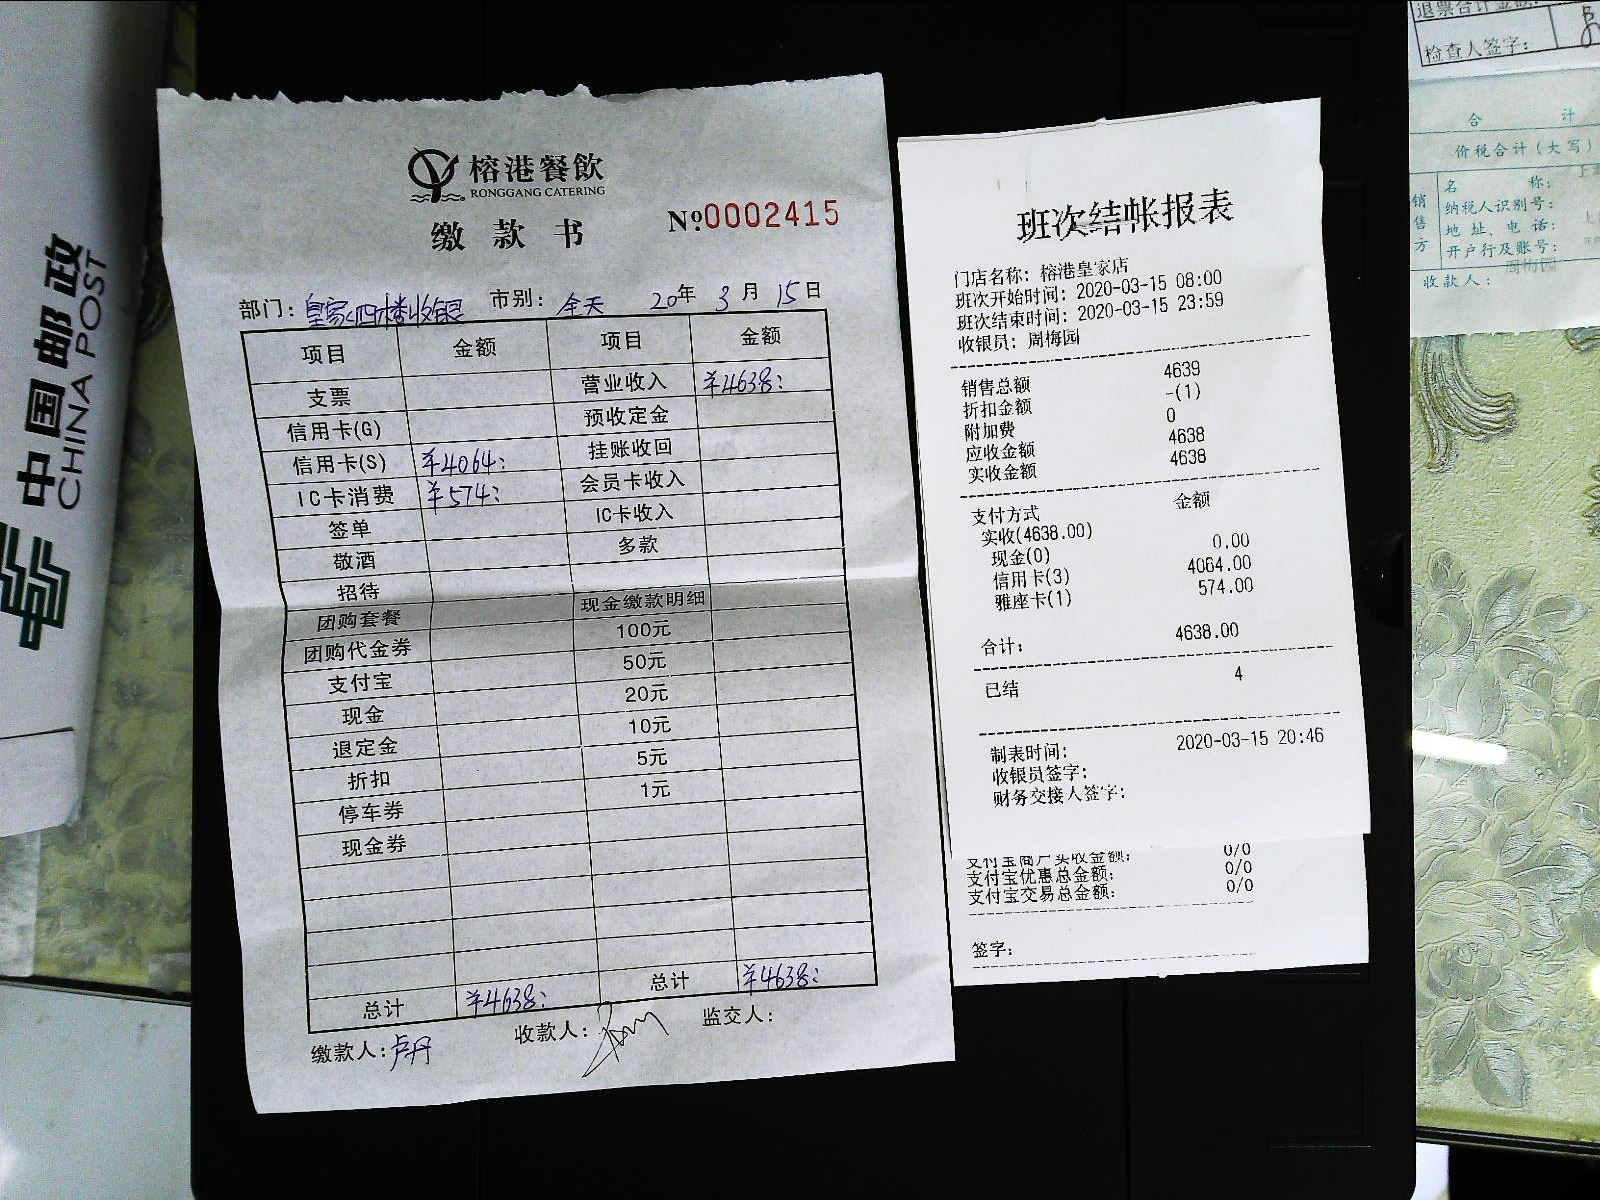 中国邮政
CHINA POST
榕港餐飲
RONGGANG CATERING
缴款书
№0002415
部门：皇家四楼收银 市别：全天 20年3月15日
项目 金额 项目 金额
支票 营业收入 ¥4638：
信用卡(G) 预收定金
信用卡(S) ¥4064： 挂账收回
IC卡消费 ¥574： 会员卡收入
签单 IC卡收入
敬酒 多款
招待
团购套餐 现金缴款明细
团购代金券 100元
支付宝 50元
现金 20元
退定金 10元
折扣 5元
停车券 1元
现金券
总计 ¥4638： 总计 ¥4638：
缴款人：卢丹 收款人： 监交人：
班次结帐报表
门店名称：榕港皇家店
班次开始时间：2020-03-15 08:00
班次结束时间：2020-03-15 23:59
收银员：周梅园
销售总额 4639
折扣金额 -(1)
附加费 0
应收金额 4638
实收金额 4638
支付方式 金额
实收(4638.00)
现金(0) 0.00
信用卡(3) 4064.00
雅座卡(1) 574.00
合计： 4638.00
已结 4
制表时间： 2020-03-15 20:46
收银员签字：
财务交接人签字：
支付宝商户实收金额： 0/0
支付宝优惠总金额： 0/0
支付宝交易总金额： 0/0
签字：
退票合计金额：
检查人签字：
合计
价税合计（大写）
销售方
名称：
纳税人识别号：
地址、电话：
开户行及账号：
收款人：周梅园